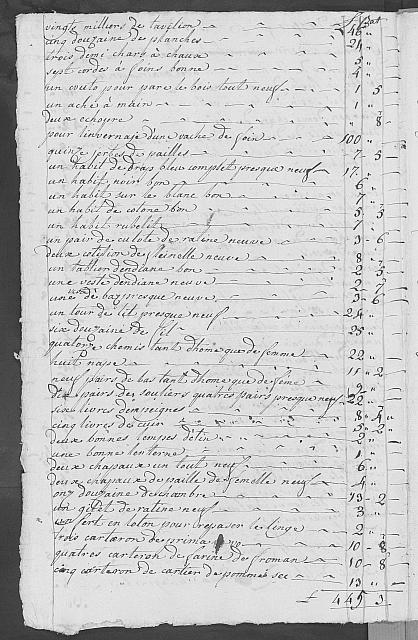 £ Bat
vingt milliers de tavelion 46 "
cinq douzaine de planches 24 "
trois demi chart à chaux 5 "
sept cordes à foins bonne 4 "
un couto pour pare le bois tout neuf 1 5
un ache à main 1 "
deux echopre " 8
pour linvernaje dune vache de foin 100 "
quinze gerbes de pailles 7 5
un habit de drap bleu complet presque neuf 17 "
un habit noir bon 6 "
un habit sur le blanc bon 7 "
un habit de cotone bon 5 "
un habit rubelit 7 "
un pair de culote de ratine neuve 3 6
deux cotillon de fleinelle neuve 8 "
un tablier dendiane bon 2 5
une veste dendiane neuve 2 7
une de bas presque neuve 3 6
un tour de lit presque neuf 24 "
six douzaine de fil 25 "
quatorze chemis tant dhome que de femme
huit nape 22 "
neuf pairs de bas tant dhome que de feme 11 2
dix pairs des souliers quatres pairs presque neuf 22 "
six livres denseignes 8 4
cinq livres de cuir 5 2
deux bonnes lempes détin 2 "
une bonne lenterne 1 "
deux chapaux un tout neuf 6 "
deux chapaux de paille de femelle neuf 4 "
onz douzaine de chambre 13 2
un gilet de ratine neuf 3 "
un fert en loton pour repaser le linge 2 "
trois carteron de prima 10 8
quatres carteron de farine de froman 10 8
cinq carteron de cartier de pommes sec 13 "
£ 445 3